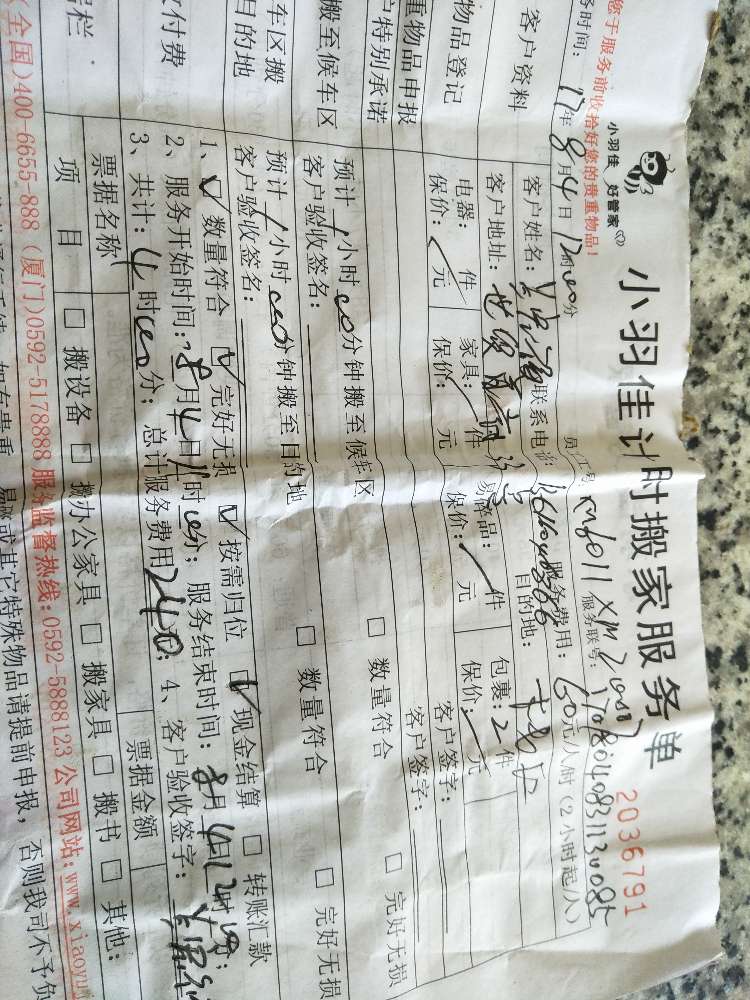 小羽佳计时搬家服务单
2036791
小羽佳 好管家
您于服务前收拾好您的贵重物品!
务时间: 17年8月4日12时00分
员工号:
服务联号: 1708040831130085
客户资料
客户姓名:
联系电话:
服务费用: 60元/人/时(2小时起/人)
客户地址:
目的地:
物品登记
电器: 件
家具: 件
易碎品: 件
包裹: 2件
保价: 元
保价: 元
保价: 元
保价: 元
重物品申报
客户签字:
户特别承诺
客户签字:
搬至候车区
预计1小时00分钟搬至候车区
□ 数量符合
□ 完好无损
客户验收签名:
车区搬
目的地
预计1小时00分钟搬至目的地
□ 数量符合
□ 完好无损
客户验收签名:
收付费
1、☑ 数量符合 ☑ 完好无损 ☑ 按需归位 ☑ 现金结算 □ 转账汇款
2、服务开始时间: 8月4日 时00分; 服务结束时间: 8月4日12时00分;
3、共计: 4时00分; 总计服务费用240; 4、客户验收签字:
据栏
票据名称
票据金额
项目
□ 搬设备 □ 搬办公家具 □ 搬家具 □ 搬书 □ 其他:
(全国)400-6655-888 (厦门)0592-5178888 服务监督热线:0592-5888123 公司网站:www.xiaoyu
易碎或其它特殊物品请提前申报, 否则我司不予负